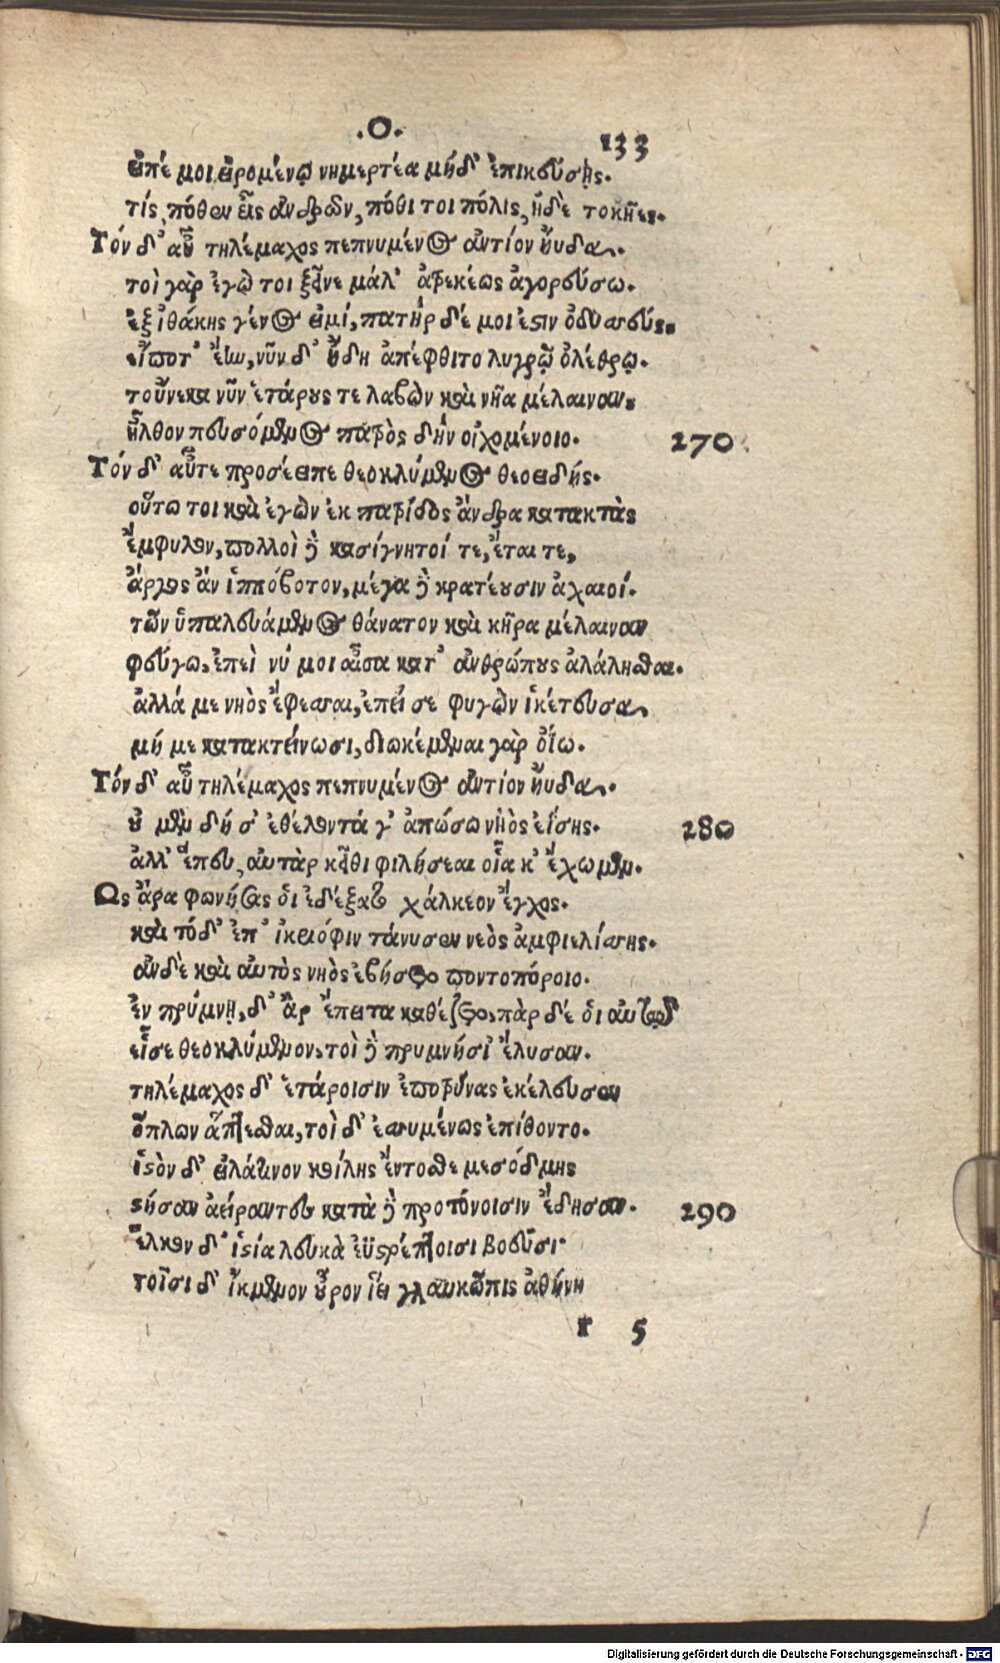 .Ο.
133
εἰπέ μοι εἰρομένῳ νημερτέα μήδ' ἐπικεύσῃς.
τίς, πόθεν εἶς ἀνδρῶν, πόθι τοι πόλις, ἠδὲ τοκῆες.
Τόν δ' αὖ τηλέμαχος πεπνυμένος ἀντίον ηὔδα.
τοὶ γὰρ ἐγώ τοι ξεῖνε μάλ' ἀτρεκέως ἀγορεύσω.
ἐξ ἰθάκης γένος εἰμί, πατὴρ δέ μοι ἐστιν ὀδυσσεύς.
εἴποτ' ἔην, νῦν δ' ἤδη ἀπέφθιτο λυγρῷ ὀλέθρῳ.
τοὔνεκα νῦν ἑτάρους τε λαβὼν καὶ νῆα μέλαιναν,
ἦλθον πευσόμενος πατρὸς δὴν οἰχομένοιο.
270
Τόν δ' αὖτε προσέειπε θεοκλύμενος θεοειδής.
οὕτω τοι καὶ ἐγὼν ἐκ πατρίδος ἄνδρα κατακτὰς
ἔμφυλον, πολλοὶ δὲ κασίγνητοί τε, ἔται τε,
ἄργος ἀν ἱππόβοτον, μέγα δὲ κρατέουσιν ἀχαιοί.
τῶν ὑπαλευάμενος θάνατον καὶ κῆρα μέλαιναν
φεύγω, ἐπεὶ νύ μοι αἶσα κατ' ἀνθρώπους ἀλάλησθαι.
ἀλλά με νηὸς ἔφεσσαι, ἐπεί σε φυγὼν ἱκέτευσα,
μή με κατακτείνωσι, διωκέμεναι γὰρ ὀΐω.
Τόν δ' αὖ τηλέμαχος πεπνυμένος ἀντίον ηὔδα.
οὐ μὲν δή σ' ἐθέλοντά γ' ἀπώσω νηὸς ἐΐσης.
280
ἀλλ' ἕπευ, αὐτὰρ κεῖθι φιλήσεαι οἷά κ' ἔχωμεν.
Ως ἄρα φωνήσας ὁι ἐδέξατο χάλκεον ἔγχος.
καὶ τόδ' ἐπ' ἰκειόφιν τάνυσεν νεὸς ἀμφιελίσσης.
ἀνδὲ καὶ αὐτὸς νηὸς ἐβήσετο ποντοπόροιο.
ἐν πρύμνῃ, δ' ἂρ ἔπειτα καθέζετο, πὰρ δέ ὁι αὐτῷ
εἷσε θεοκλύμενον, τοὶ δὲ πρυμνήσι' ἔλυσαν.
τηλέμαχος δ' ἑτάροισιν ἐποτρύνας ἐκέλευσεν
ὅπλων ἅπτεσθαι, τοὶ δ' ἐσσυμένως ἐπίθοντο.
ἱστὸν δ' εἰλάτινον κοίλης ἔντοσθε μεσόδμης
στήσαν ἀείραντες κατὰ δὲ προτόνοισιν ἔδησαν.
290
ἕλκον δ' ἱστία λευκὰ ἐϋστρέπτοισι βοεῦσι·
τοῖσι δ' ἴκμενον οὖρον ἵει γλαυκῶπις ἀθήνη
r 5
Digitalisierung gefördert durch die Deutsche Forschungsgemeinschaft - DFG